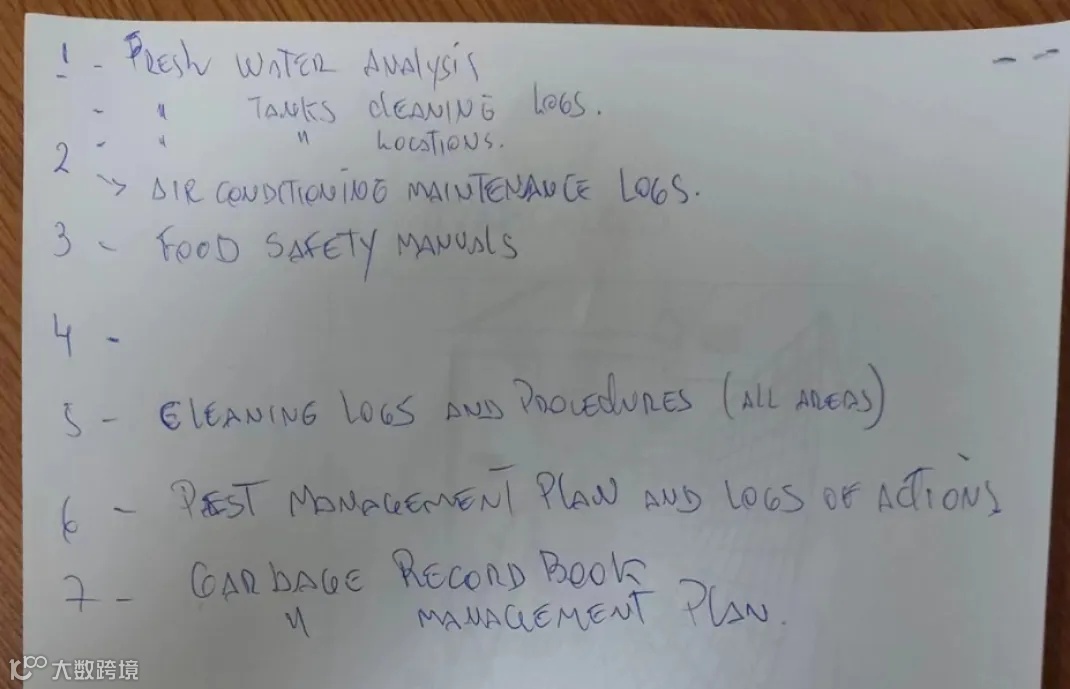 1 - FRESH WATER ANALYSIS
- " TANKS CLEANING LOGS.
- " " LOCATIONS.
2
→ AIR CONDITIONING MAINTENANCE LOGS.
3 - FOOD SAFETY MANUALS
4 -
5 - CLEANING LOGS AND PROCEDURES (ALL AREAS)
6 - PEST MANAGEMENT PLAN AND LOGS OF ACTIONS
7 - GARBAGE RECORD BOOK
" MANAGEMENT PLAN.
大数跨境